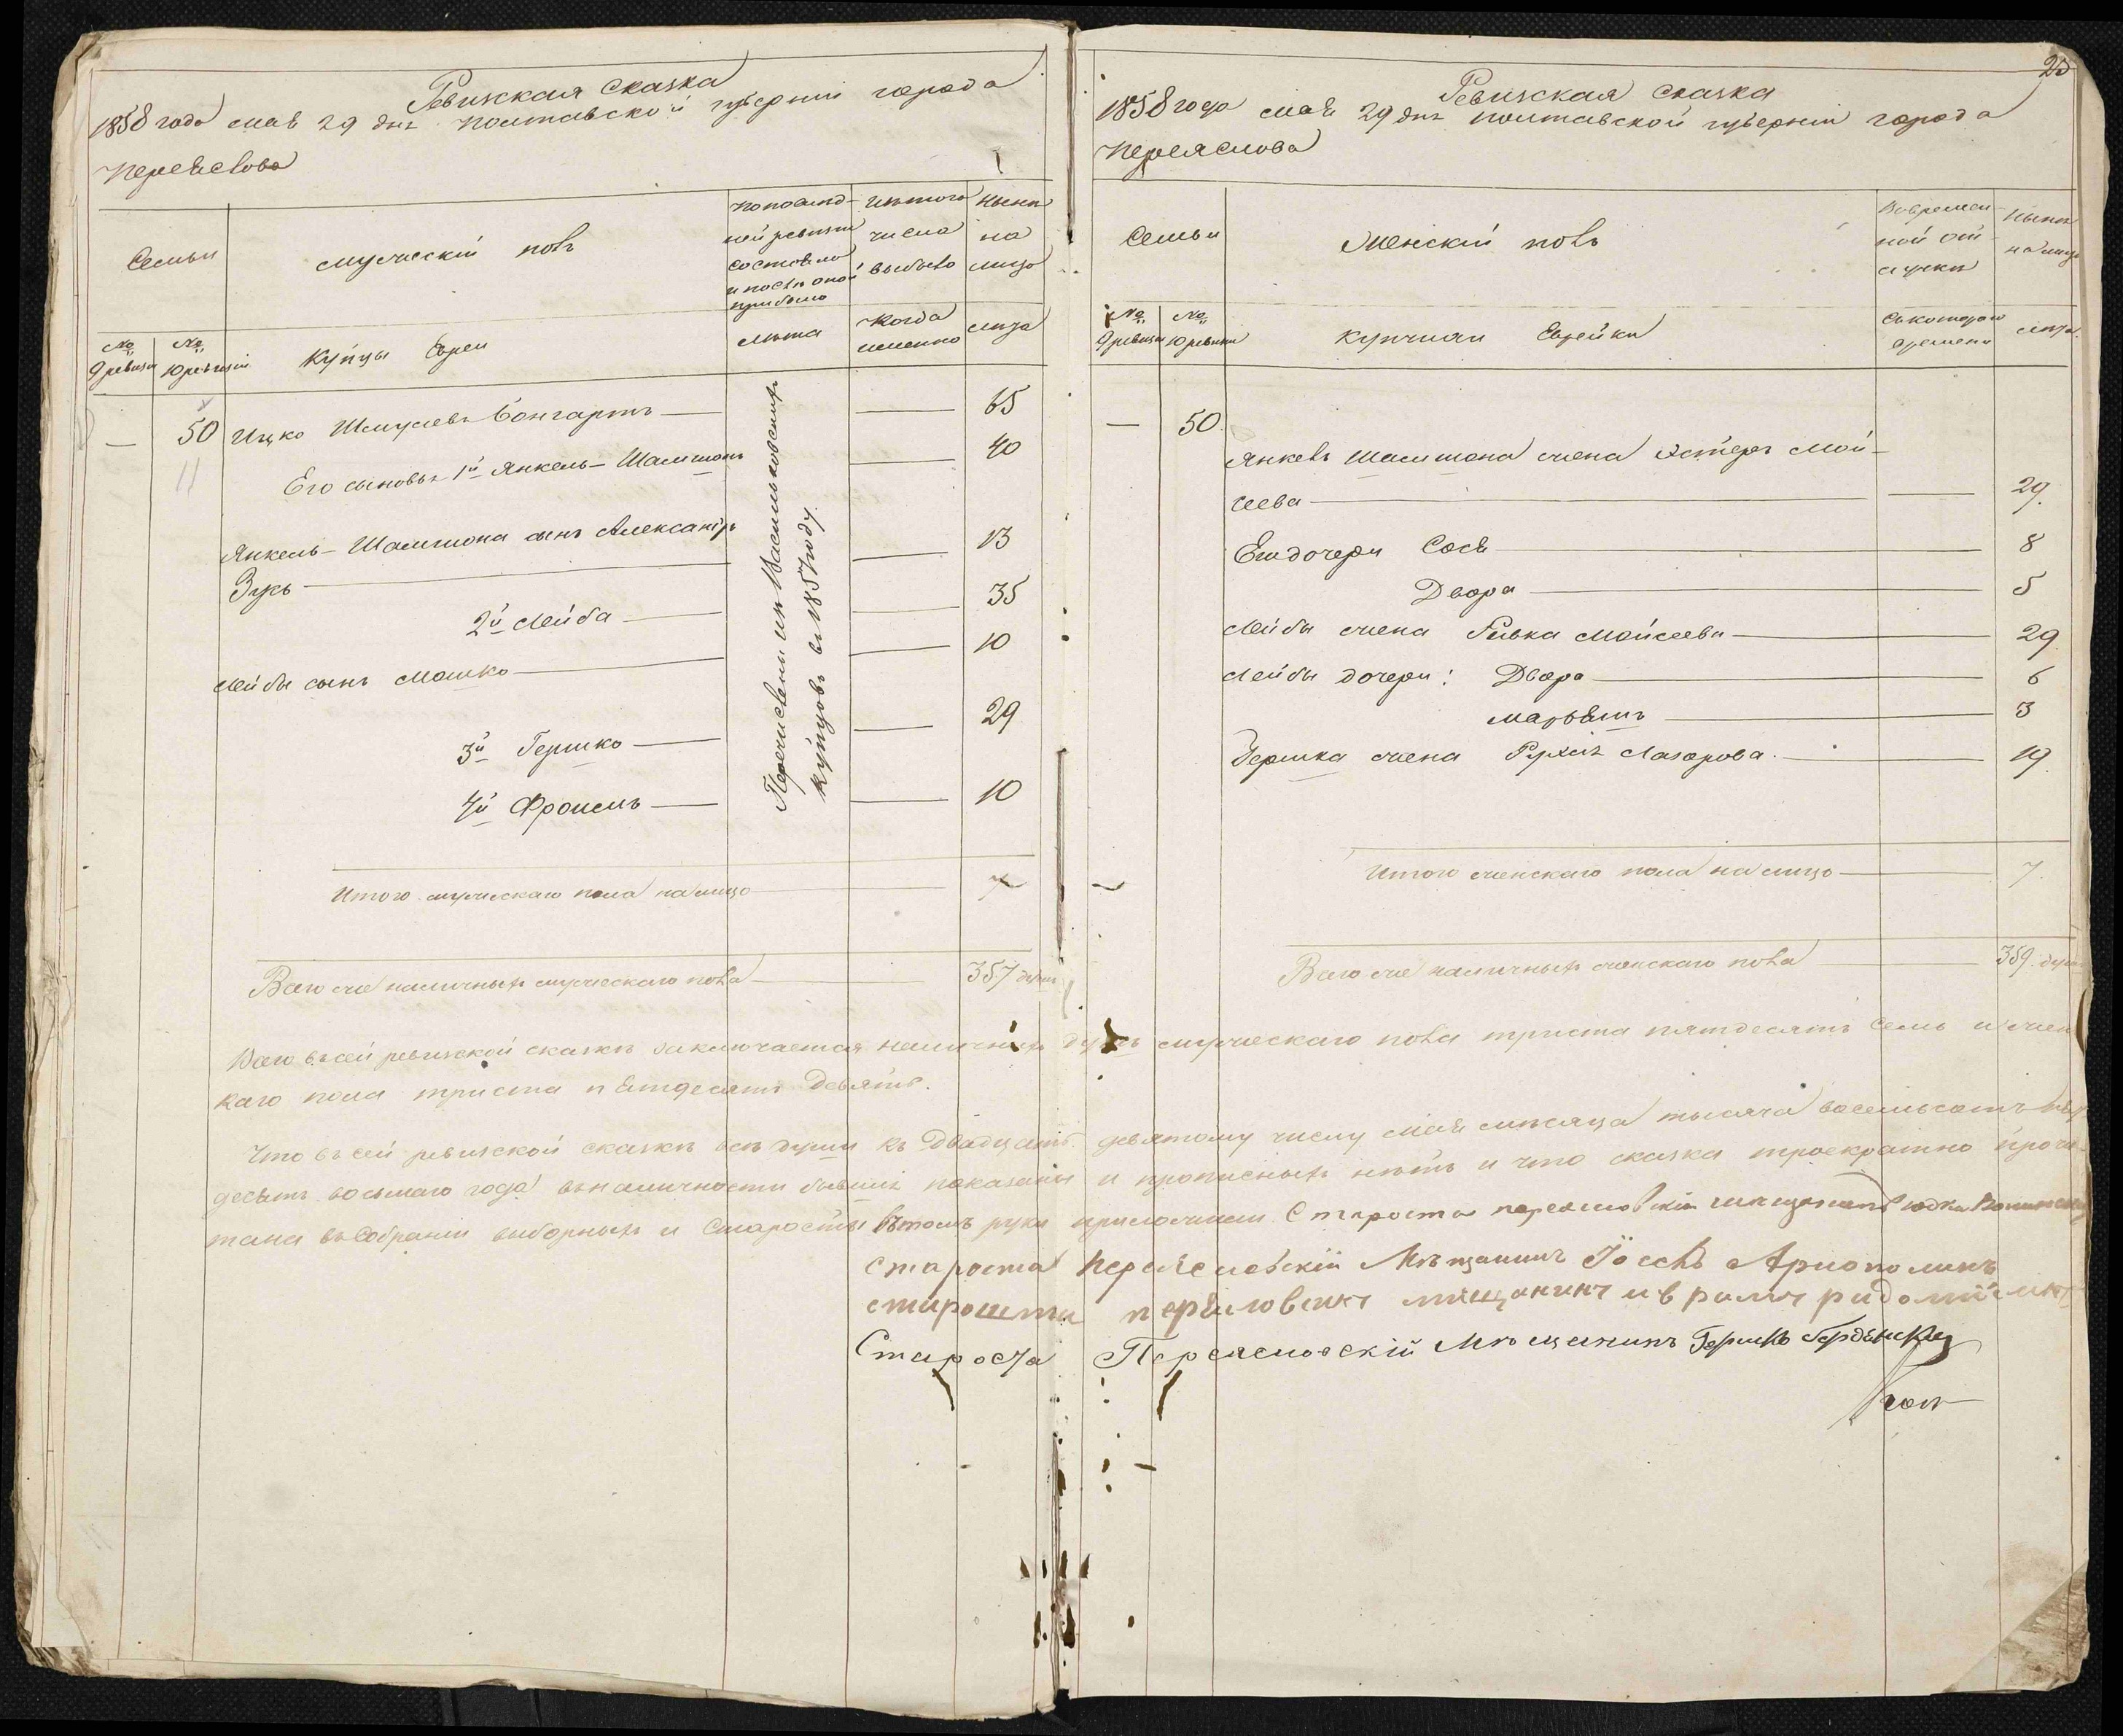 Ревизская сказка
1858 года мая 29 дня Полтавской губернии города
Переяслова
Семьи
Мужескій полъ
По послед-
ней ревизии
состояло
и послѣ оной
прибыло
Изъ того
числа
выбыло
Нынѣ
на
лицо
№
9 ревизіи
№
10 ревизіи
Купцы Евреи
лѣта
Когда
именно
лѣта
—
50
Ицко Шмулевъ Бонгартъ — — 65
11
Его сыновья 1й Янкель-Шамшонъ — 40
Янкель-Шамшона сынъ Александръ
Зусь — — 13
2й Лейба — — 35
Лейбы сынъ Мошко — — 10
3й Гершко — — 29
4й Фроимъ — — 10
Перечислены изъ Васильковскихъ
купцовъ въ 1857 году.
Итого мужескаго пола на лицо — 7
Всего же наличныхъ мужескаго пола — 357 душъ
25
Ревизская сказка
1858 года мая 29 дня Полтавской губерніи города
Переяслова
Семьи
Женскій полъ
Во времен-
ной от-
лучки
Нынѣ
на лицо
№
9 ревизіи
№
10 ревизіи
Купчихи Еврейки
Съ котораго
времени
лѣта
—
50.
Янкель Шамшона жена Эстеръ Мой-
сеева — — 29.
Его дочери Сося — 8
Двора — 5
Лейбы жена Ривка Мойсеева — 29
Лейбы дочери: Двора — 6
Марьямъ — 3
Гершка жена Рухля Лазорова. — 19.
Итого женскаго пола на лицо — 7.
Всего же наличныхъ женскаго пола — 359. душъ
Всего въ сей ревизской сказкѣ заключается наличныхъ душъ мужескаго пола триста пятдесятъ семь и жен
каго пола триста пятдесятъ девять.
Что въ сей ревизской сказкѣ всѣ души къ двадцать девятому числу мая мѣсяца тысяча восемьсотъ пять
десятъ восьмаго года въ наличности бывшіе показаны и прописныхъ нѣтъ и что сказка троекратно прочи-
тана въ собраніи выборныхъ и Старосты въ томъ руки приложили Староста переясловскій мещанинъ Юдка
Староста Переясловскій Мѣщанинъ Іосевъ
старошта мещанинъ
Староста Переясловскій Мѣщанинъ Гершко